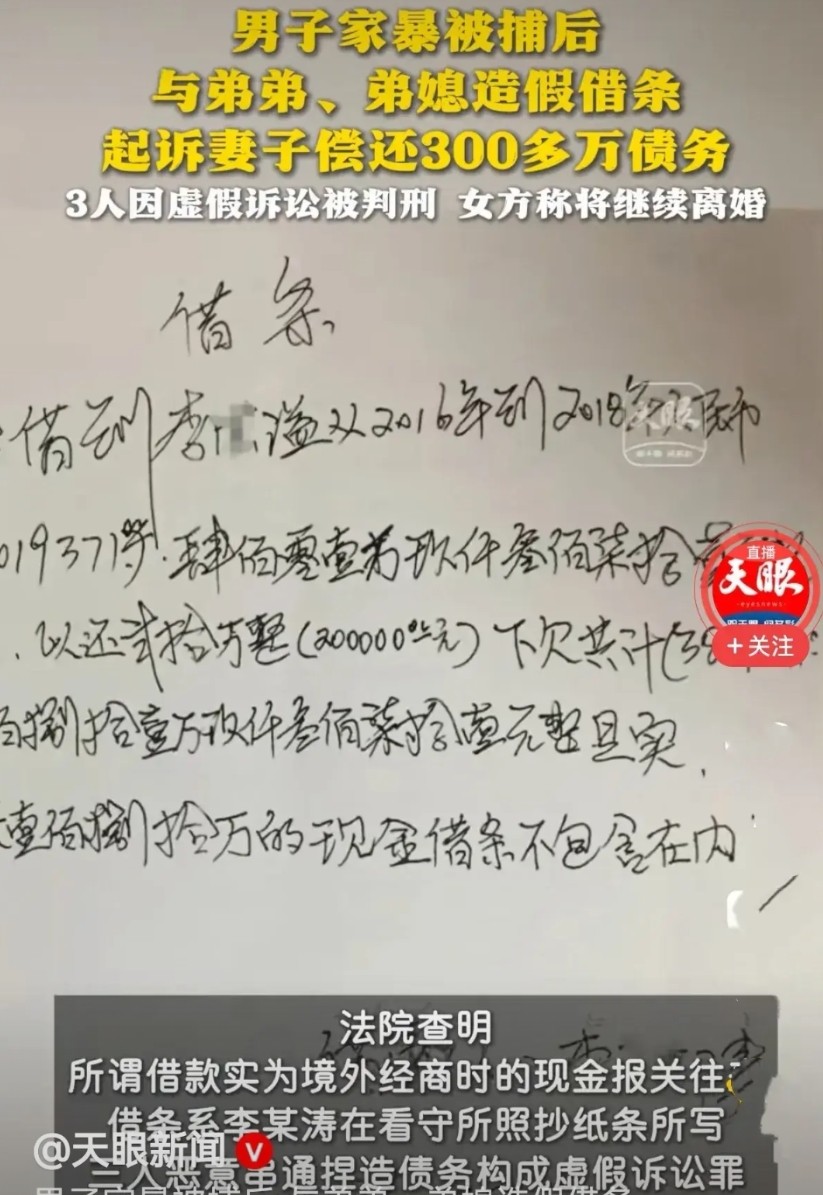 男子家暴被捕后
与弟弟、弟媳造假借条
起诉妻子偿还300多万债务
3人因虚假诉讼被判刑 女方称将继续离婚
借条
借到李 溢从2016年到2018年 民币
019371.00 肆佰零壹万玖仟叁佰柒拾
直播
天眼
eyesnews
+关注
以还弍拾万整(200000.00元)下欠共计(38
佰捌拾壹万玖仟叁佰柒拾壹元整且实,
壹佰捌拾万的现金借条不包含在内
法院查明
所谓借款实为境外经商时的现金报关往
借条系李某涛在看守所照抄纸条所写
@天眼新闻
三人恶意串通捏造债务构成虚假诉讼罪
男子家暴被捕后 与弟弟、弟媳造假借条